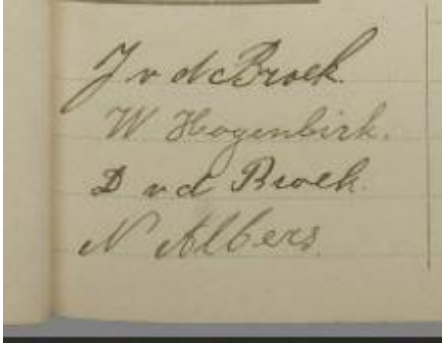 J v d Broek
W Hogenbirk.
D v d Broek.
N Albers